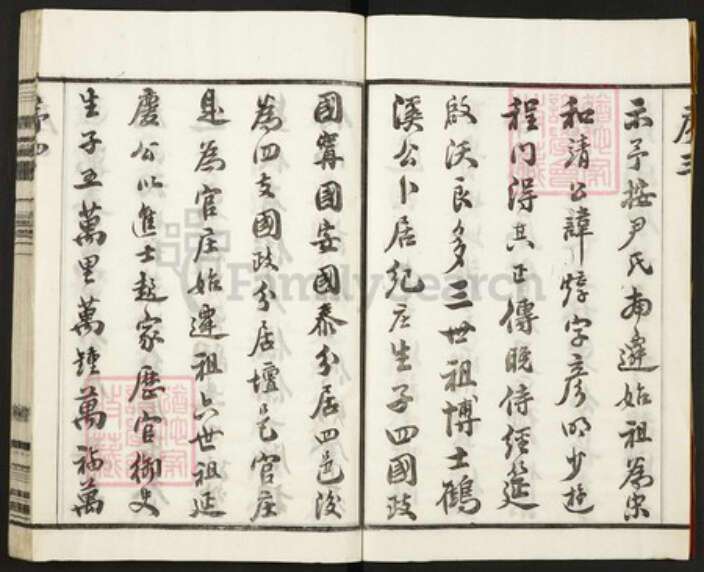 序三
示予按尹氏南遷始祖為宋
和靖公諱焞字彥明少遊
程門得其正傳晚侍經筵
啟沃良多三世祖博士鶴
溪公卜居紀庄生子四國政
國寧國安國泰分居四邑後
為四支國政分居壇邑官庄
是為官庄始遷祖六世祖延
慶公以進士起家歷官御史
生子五萬里萬鍾萬福萬
序四
FamilySearch